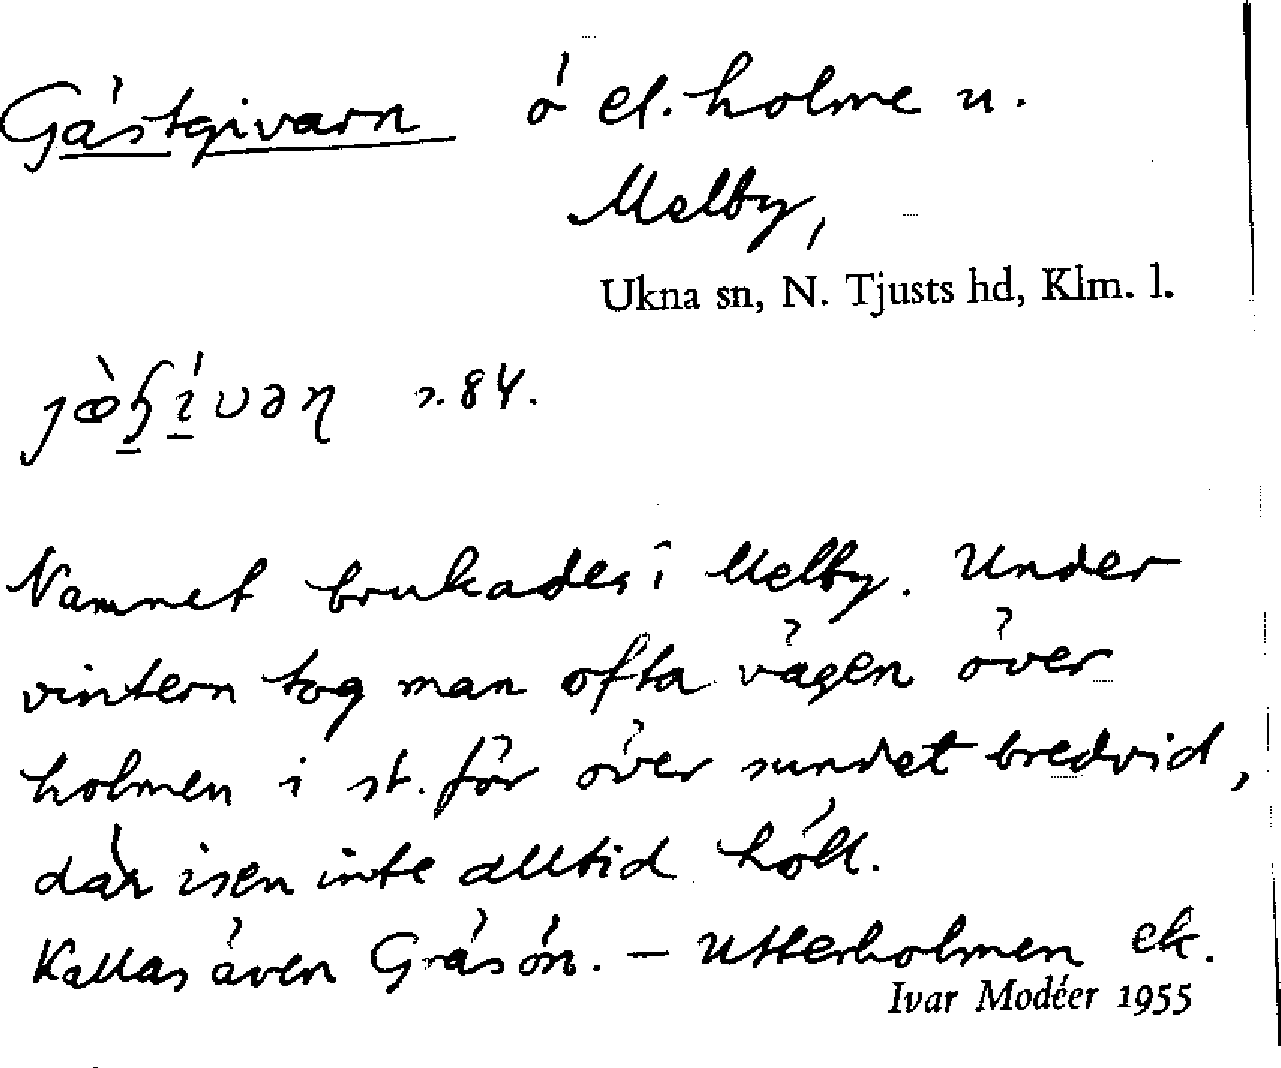 Gästgivarn ö el. holme u.
Melby,
Ukna sn, N. Tjusts hd, Klm. l.
84.
Namnet brukades i Melby. Under
vintern tog man ofta vägen över
holmen i st. för över sundet bredvid,
där isen inte alltid höll.
Kallas även Gräsön. – Utterholmen ek.
Ivar Modéer 1955